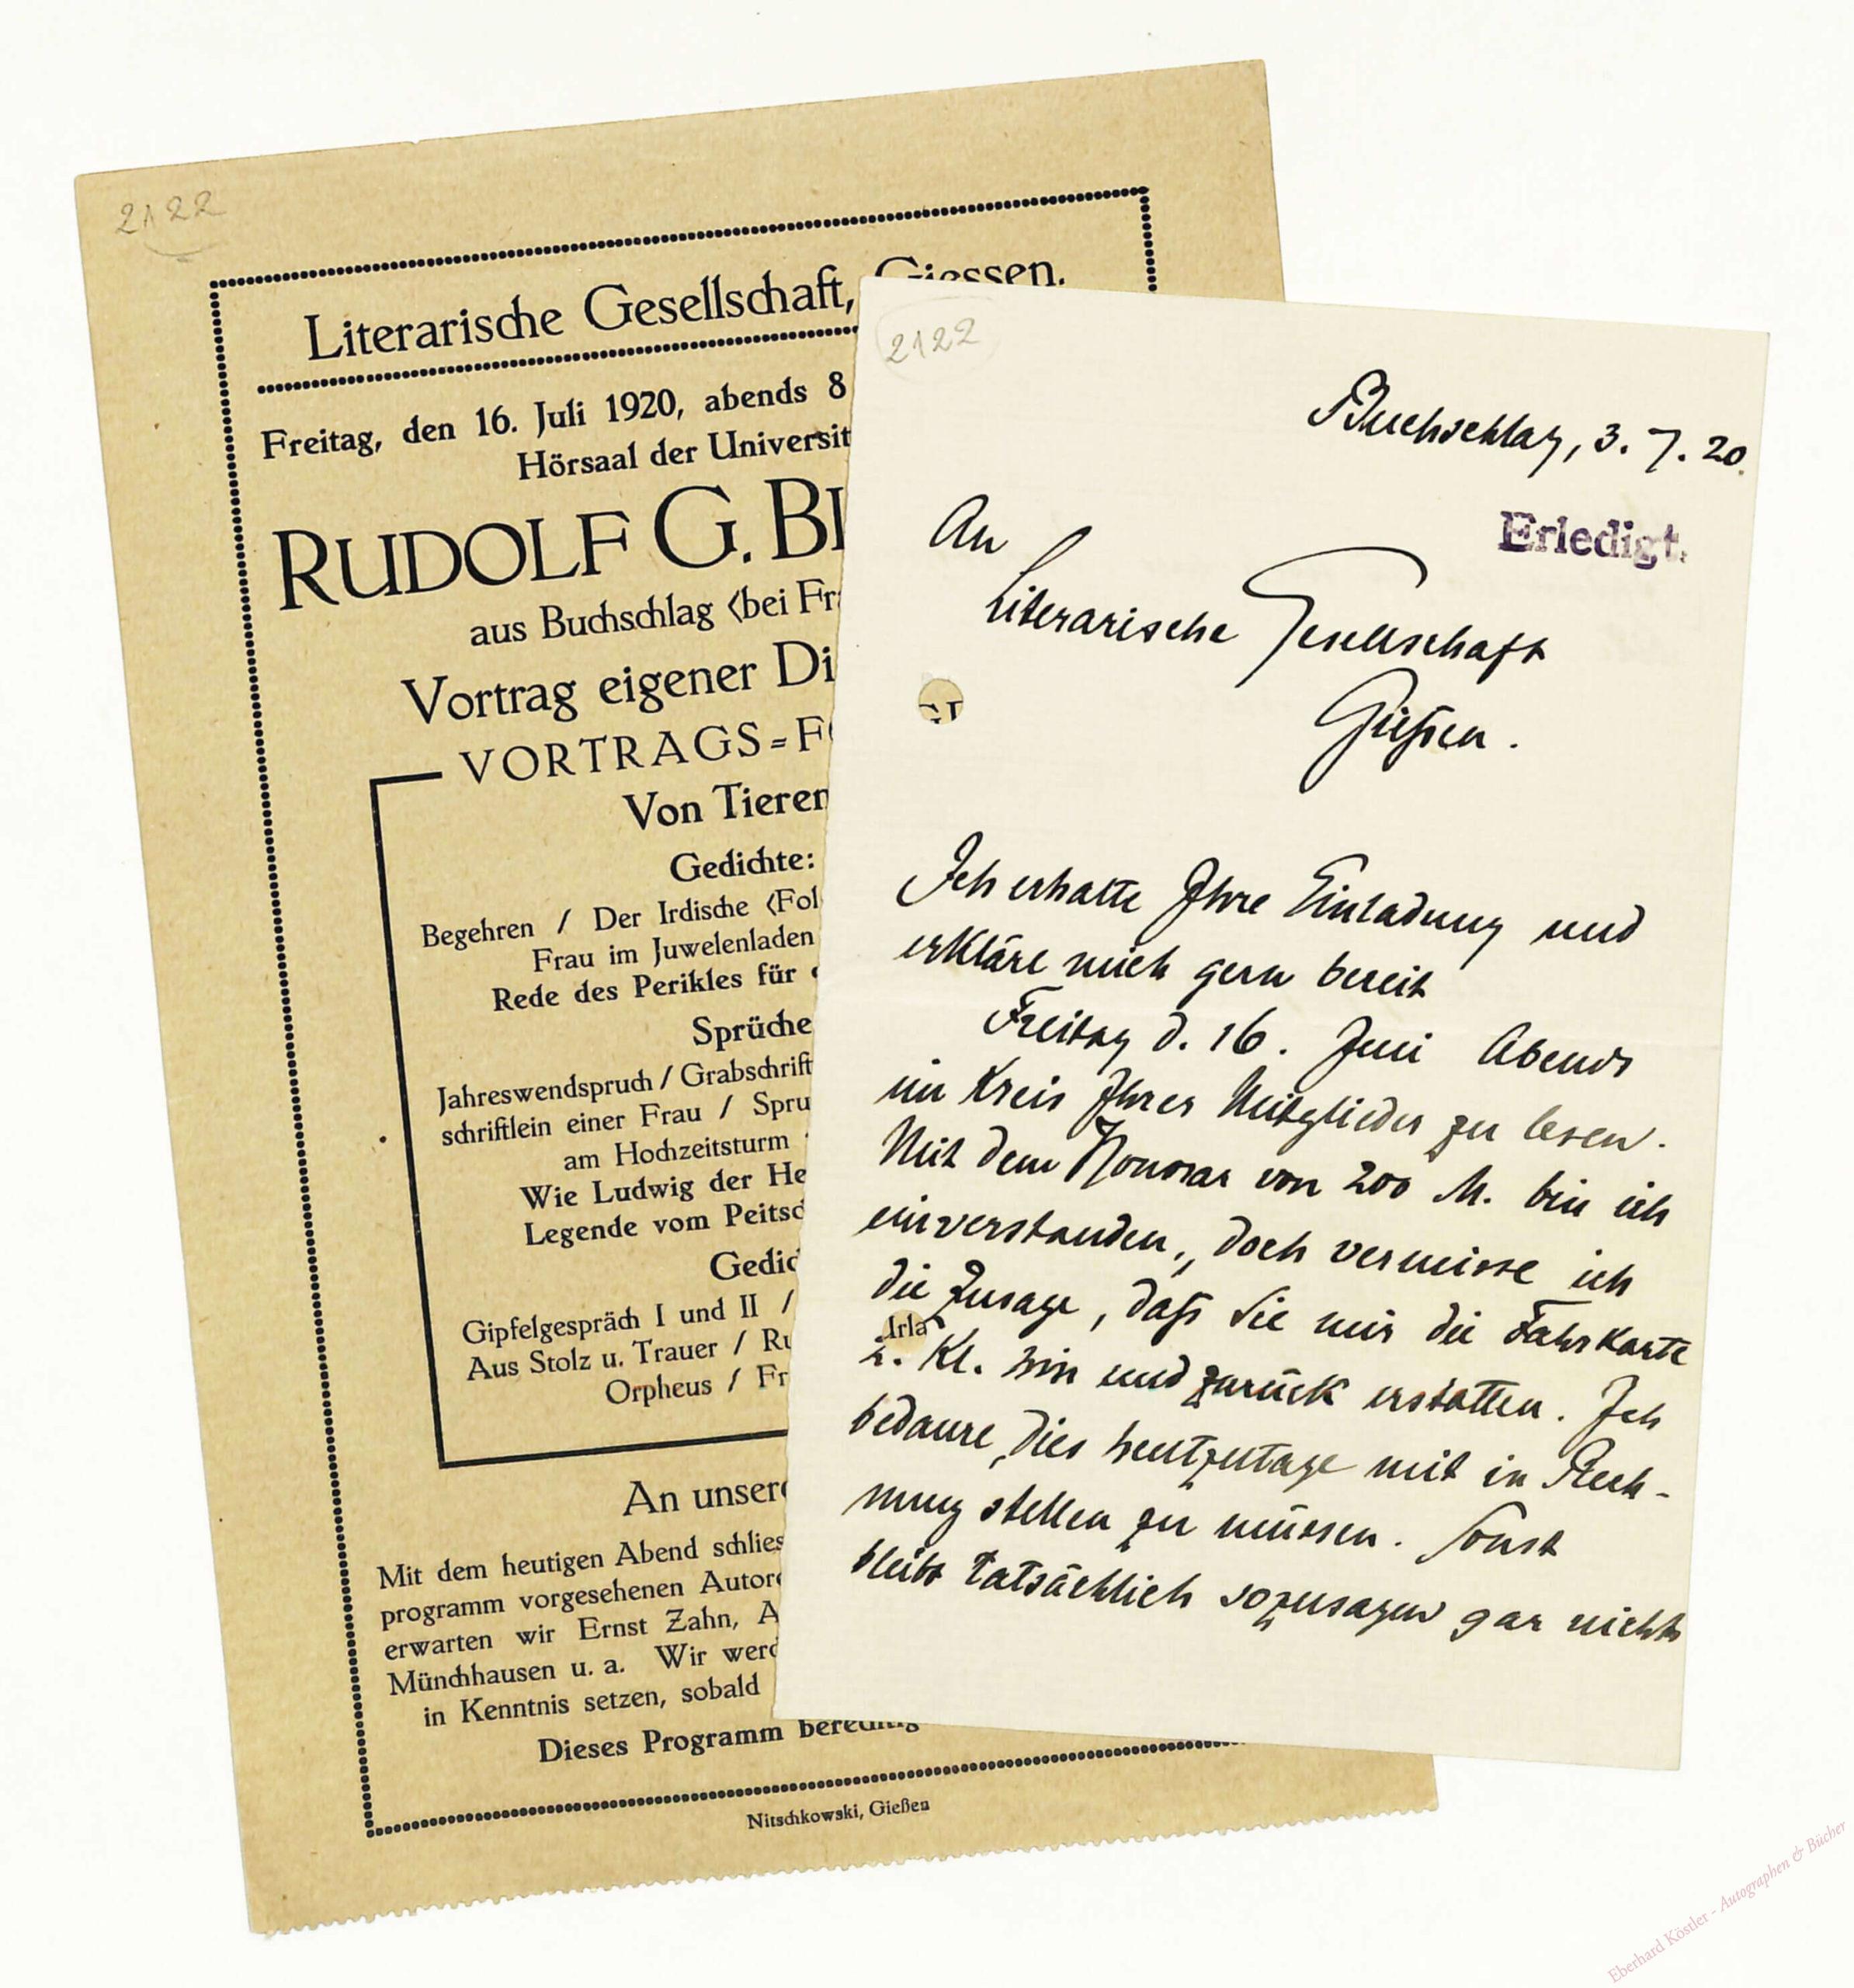 2122
Literarische Gesellschaft, Giessen.
Freitag, den 16. Juli 1920, abends 8
Hörsaal der Universit
RUDOLF G. BI
aus Buchschlag (bei Fra
Vortrag eigener Di
VORTRAGS=FO
Von Tieren
Gedichte:
Begehren / Der Irdische (Fol
Frau im Juwelenladen
Rede des Perikles für
Sprüche
Jahreswendspruch / Grabschrift
schriftlein einer Frau / Spru
am Hochzeitsturm
Wie Ludwig der He
Legende vom Peitsc
Gedic
Gipfelgespräch I und II /
Aus Stolz u. Trauer / Ru
Orpheus / Fr
An unsere
Mit dem heutigen Abend schlies
programm vorgesehenen Autore
erwarten wir Ernst Zahn, A
Münchhausen u. a. Wir werd
in Kenntnis setzen, sobald
Dieses Programm berechtig
Nitschkowski, Gießen
2122
Buchschlag, 3. 7. 20.
Erledigt.
An
Literarische Gesellschaft
Gießen.
Ich erhalte Ihre Einladung und
erkläre mich gern bereit
Freitag d. 16. Juni Abends
im Kreis Ihrer Mitglieder zu lesen.
Mit dem Honorar von 200 M. bin ich
einverstanden, doch vermisse ich
die Zusage, daß Sie mir die Fahrkarte
2. Kl. hin und zurück erstatten. Ich
bedaure, dies heutzutage mit in Rech-
nung stellen zu müssen. Sonst
bleibt tatsächlich sozusagen gar nichts
Eberhard Köstler - Autographen & Bücher